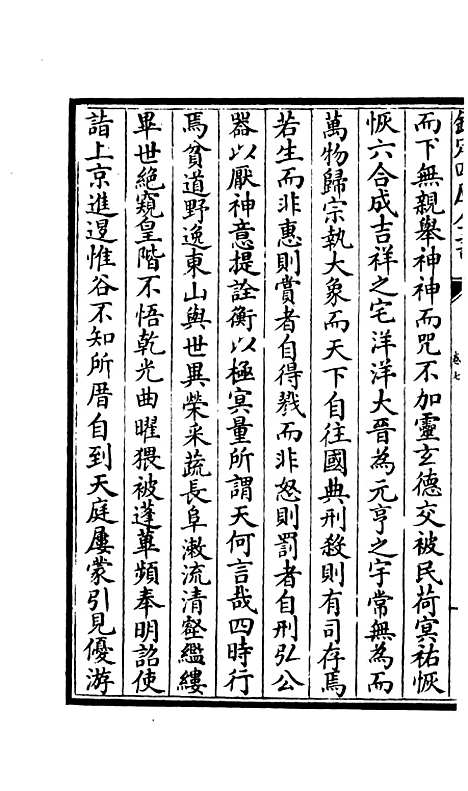 而下無親舉神神而咒不加靈玄德交被民荷冥祐恢
恢六合成吉祥之宅洋洋大晉為元亨之宇常無為而
萬物歸宗執大象而天下自往國典刑殺則有司存焉
若生而非惠則賞者自得戮而非怒則罰者自刑弘公
器以厭神意提詮衡以極冥量所謂天何言哉四時行
焉貧道野逸東山與世異榮采蔬長阜漱流清壑繿縷
畢世絶窺皇階不悟乾光曲曜猥被蓬蓽頻奉明詔使
詣上京進退惟谷不知所厝自到天庭屢蒙引見優游
卷七